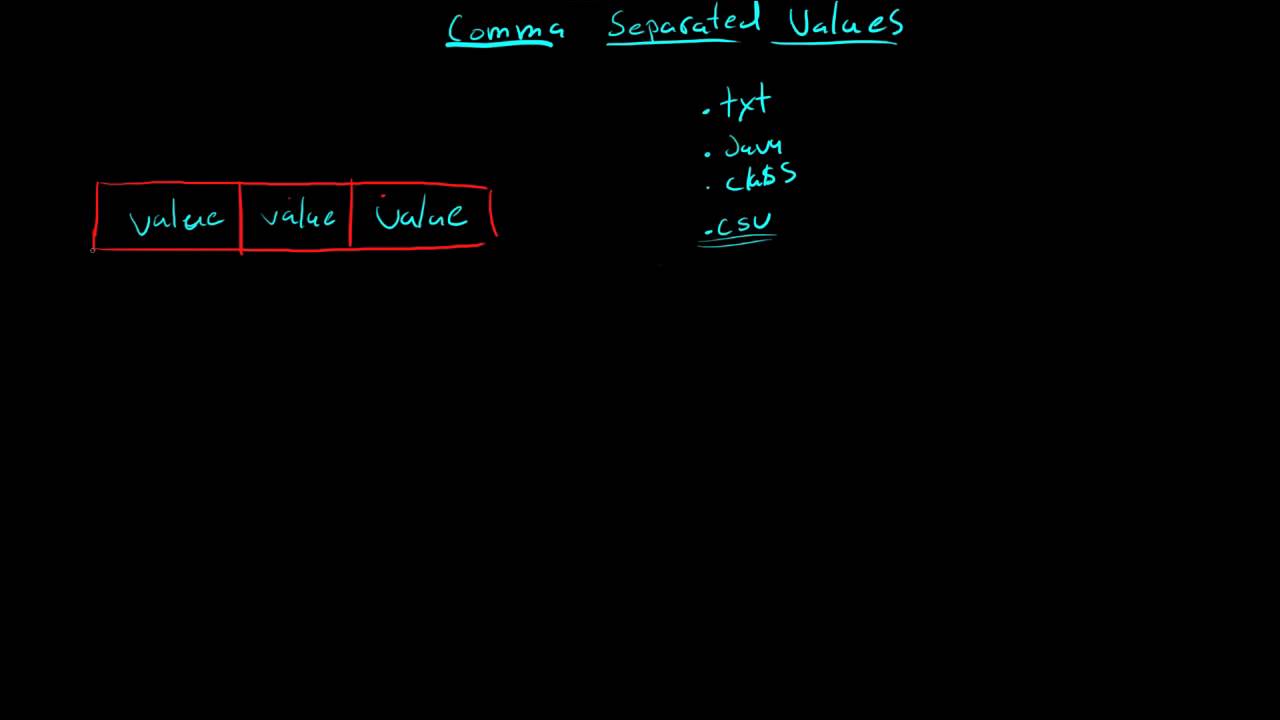 Comma Separated Values
.txt
.Java
.class
value value value
.csv